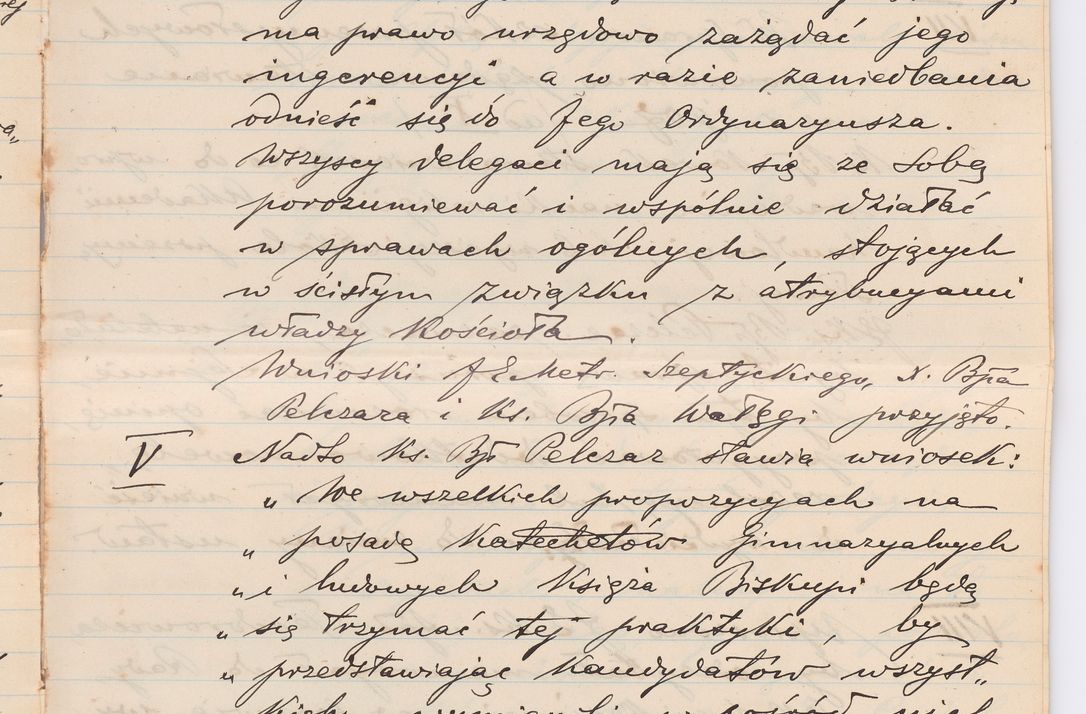 ma prawo urzędowo zażądać jego
ingerencyi, a w razie zaniedbania
odnieść się do Jego Ordynaryusza.
Wszyscy delegaci mają się ze sobą
porozumiewać i wspólnie działać
w sprawach ogólnych, stojących
w ścisłym związku z atrybucyami
władzy Kościoła.
Wnioski J E Metr. Szeptyckiego, X. Bpa
Pelczara i Ks. Bpa Wałęgi przyjęto.
V Nadto Ks. Bp Pelczar stawia wniosek:
„ We wszelkich propozycyach na
„ posadę Katechetów Gimnazyalnych
„ i ludowych Księża Biskupi będą
„ się trzymać tej praktyki, by
„ przedstawiając kandydatów wszyst„
kich, wymienili w pośród nich